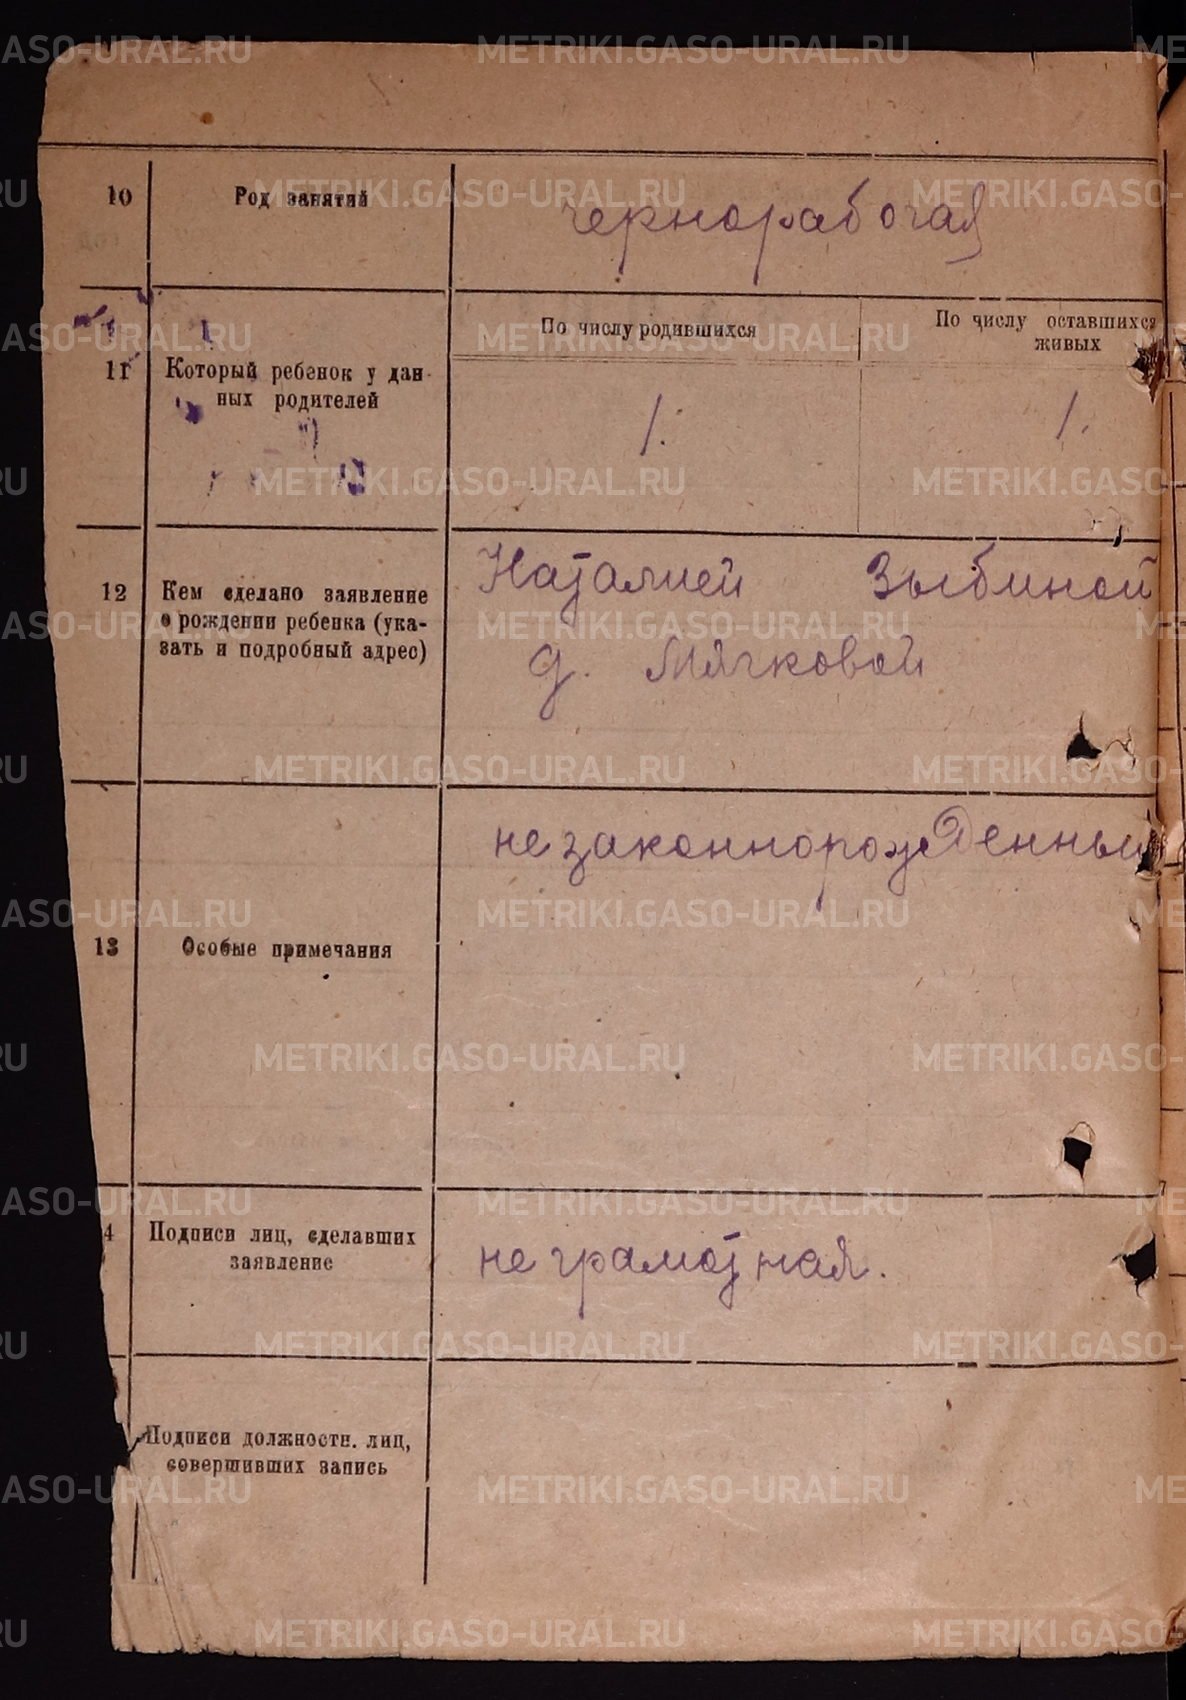 10 Род занятий чернорабочая
По числу родившихся
По числу оставшихся
живых
11 Который ребенок у дан-
ных родителей
1. 1.
12 Кем сделано заявление
о рождении ребенка (ука-
зать и подробный адрес)
Наталией Зыбиной
д. Мягковой
незаконнорожденный
13 Особые примечания
4 Подписи лиц, сделавших
заявление
неграмотная.
Подписи должностн. лиц,
совершивших запись
METRIKI.GASO-URAL.RU